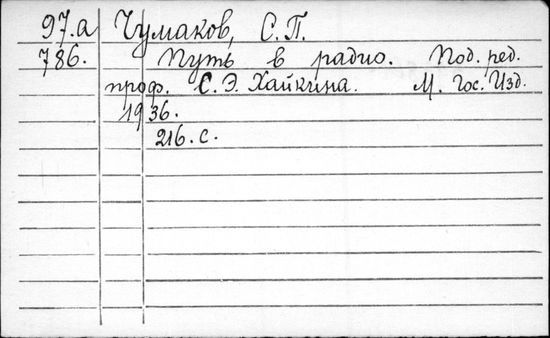 97.а Чумаков, С.П.
786. Путь в радио. Под. ред.
проф. С.Э. Хайкина. М. Гос. Изд.
1936.
216. с.